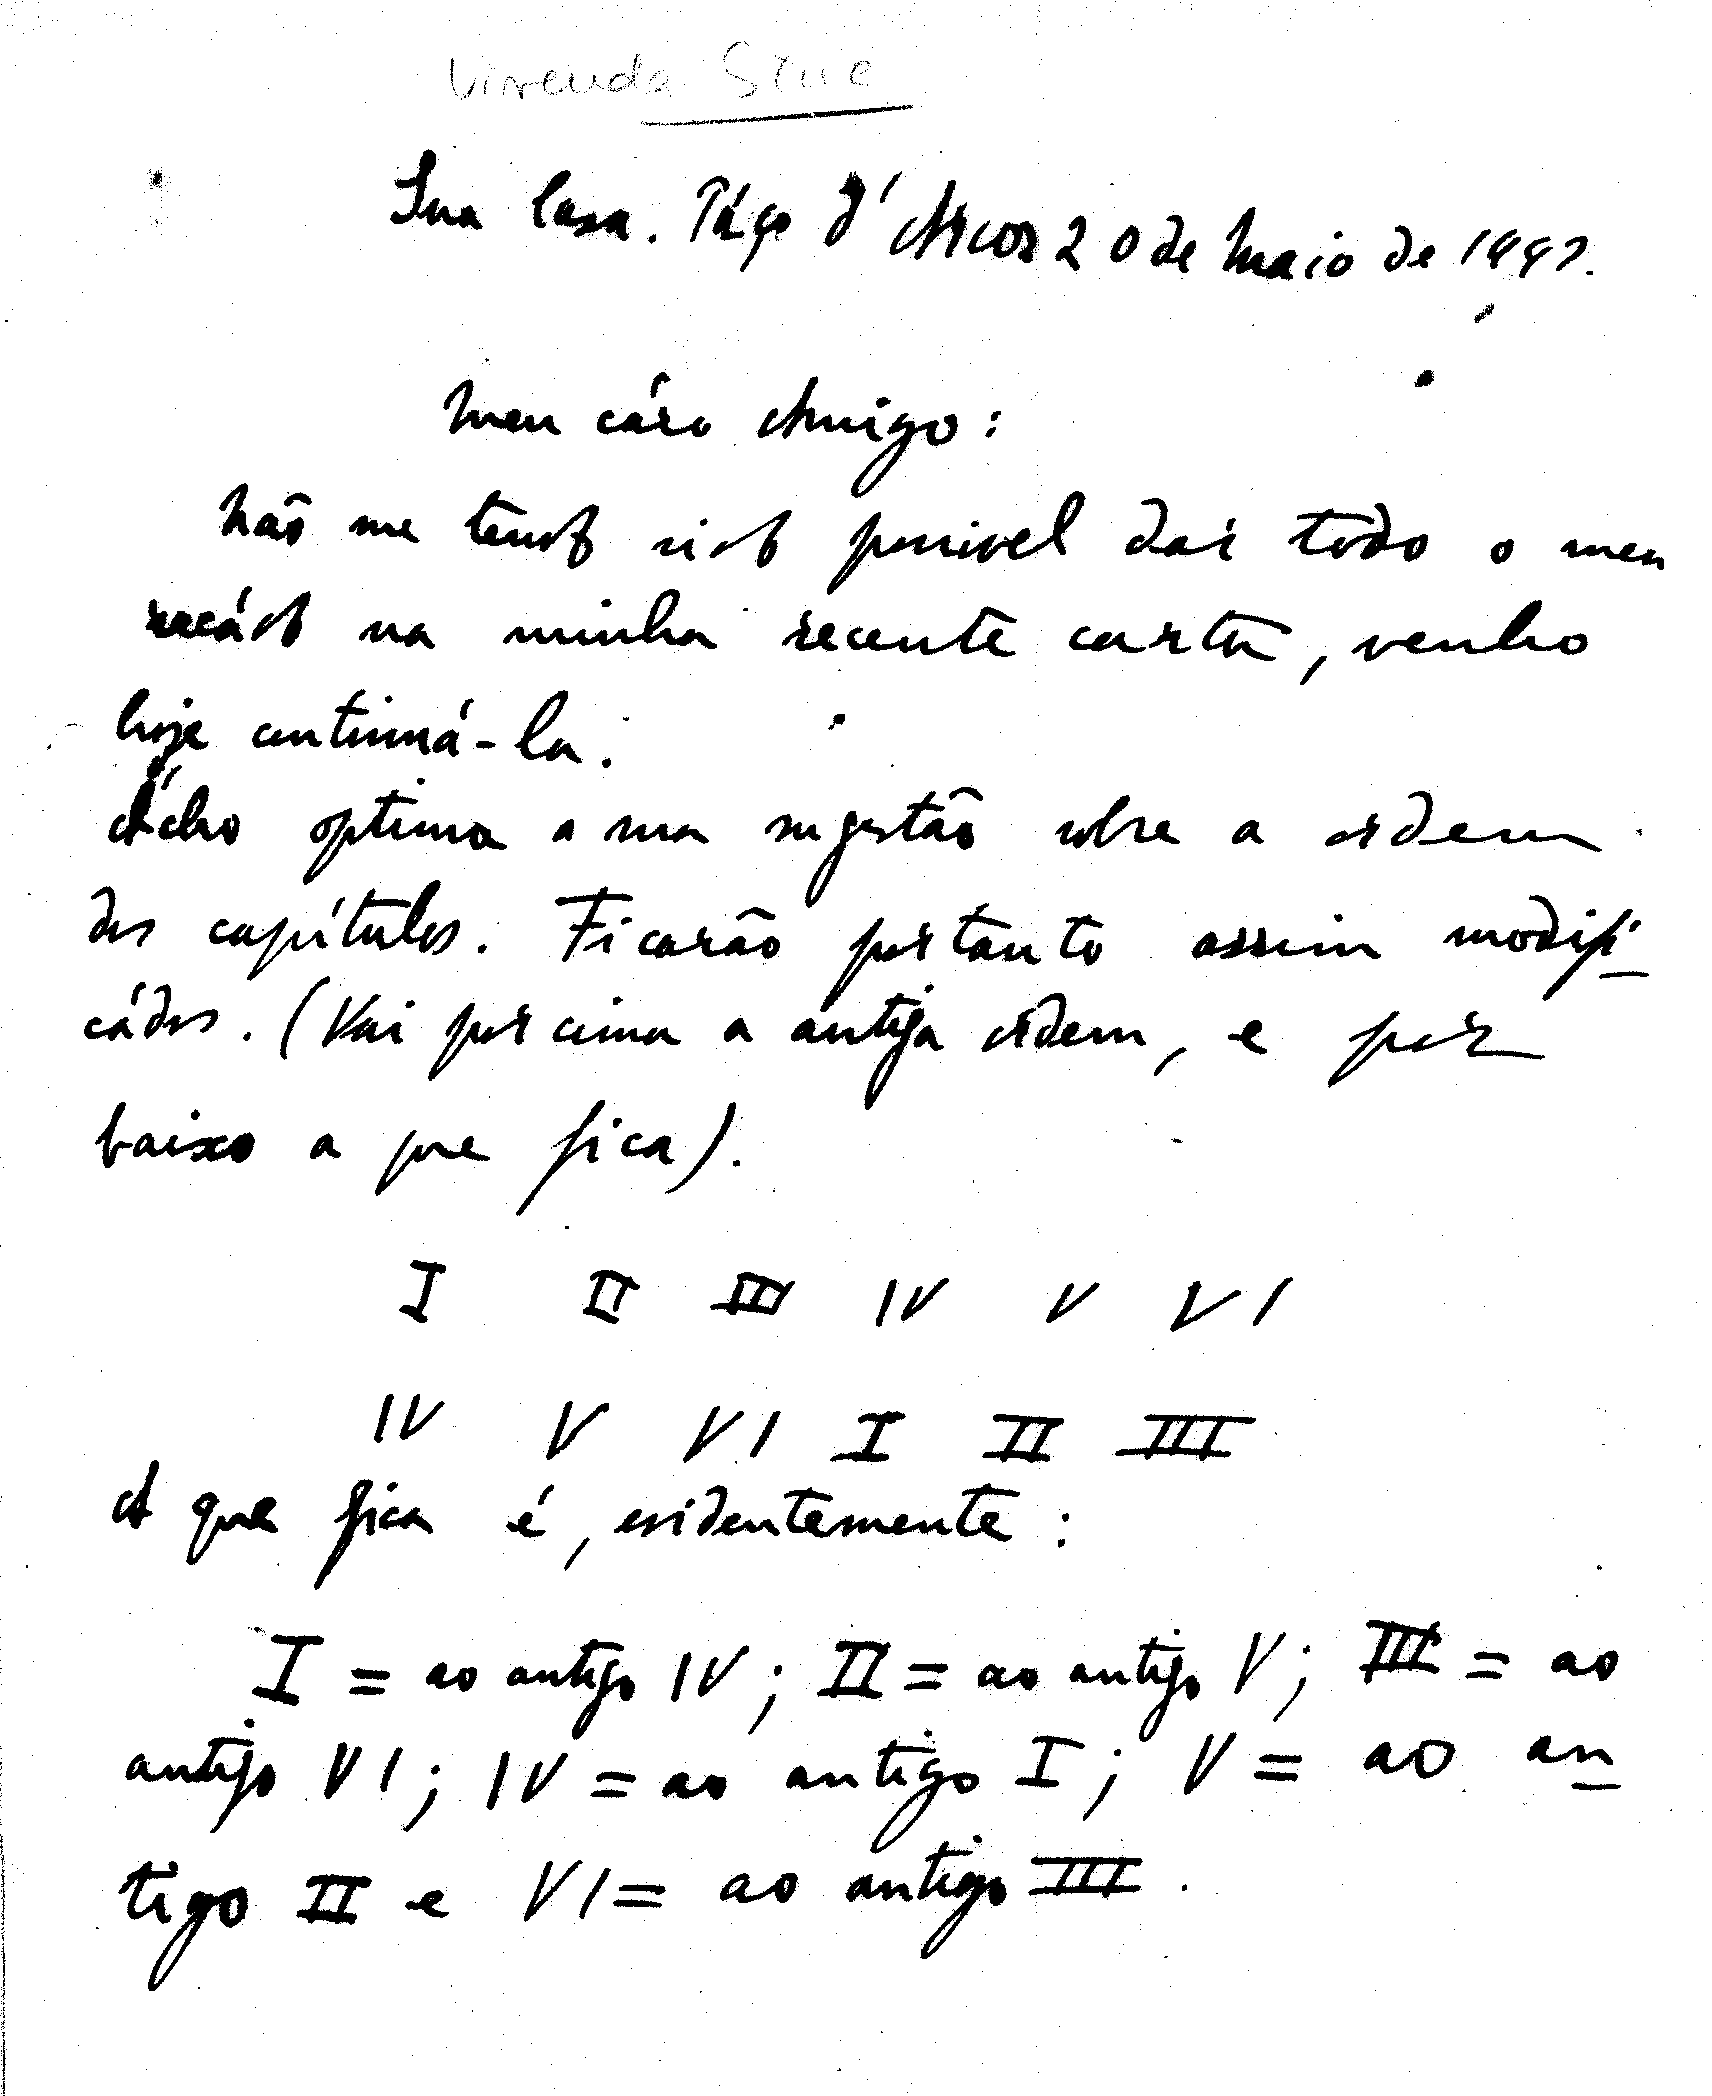 Vivenda
Sua Casa. Páço d'Arcos 20 de Maio de
Meu cáro Amigo:
Não me tendo sido possivel dar todo o meu
recádo na minha recente carta, venho
hoje continuá-la.
Ácho optima a sua sugestão sobre a ordem
dos capítulos. Ficarão portanto assim modifi
cádos. (Vai por cima a antiga ordem, e por
baixo a que fica).
I II III IV V VI
IV V VI I II III
A que fica é, evidentemente:
I = ao antigo IV; II = ao antigo V; III = ao
antigo VI; IV = ao antigo I; V = ao an
tigo II e VI = ao antigo III.